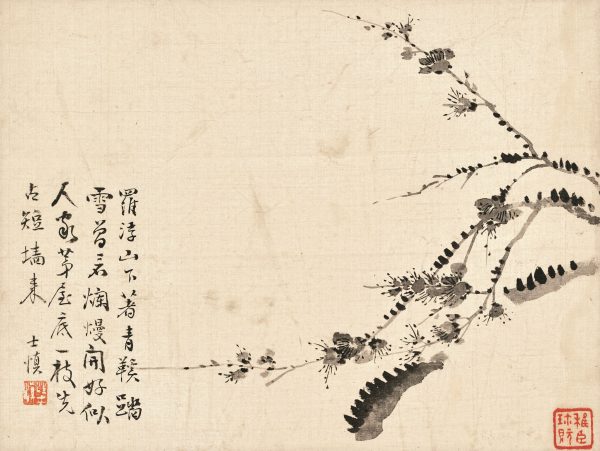 羅浮山下著青鞵蹋
雪曾看爛熳開好似
人家茅屋底一枝先
占短墻来
士慎